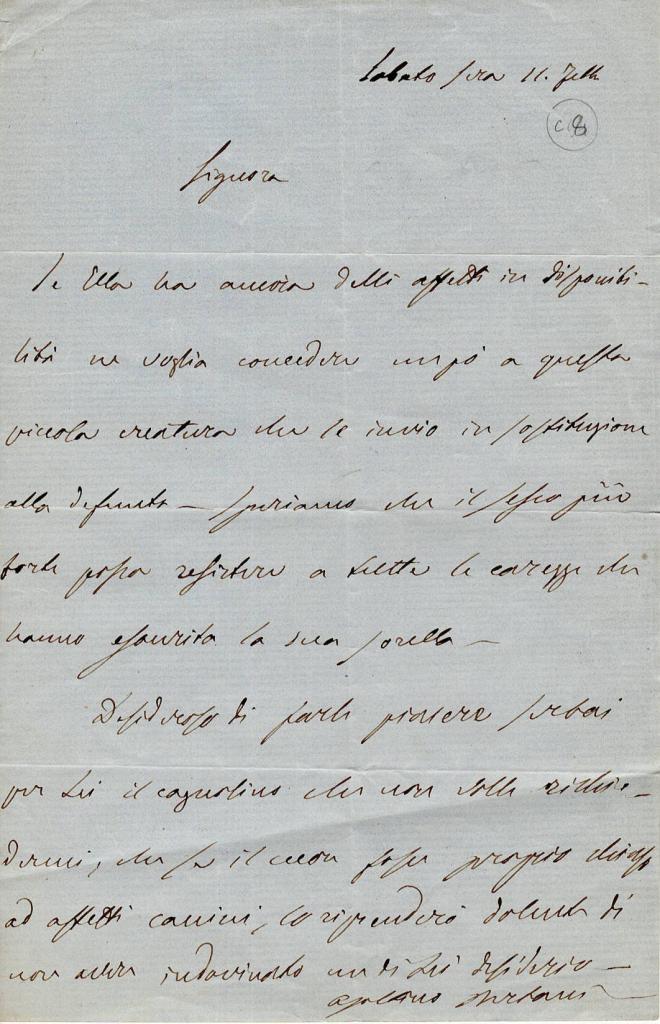 Sabato sera 11. Febb
C 8
Signora
Se Ella ha ancora delli affetti in disponibi-
lità ne voglia concedere un pò a questa
piccola creatura che le invio in sostituzione
alla defunta — speriamo che il sesso più
forte possa resistere a tutte le carezze che
hanno esaurita la sua sorella —
Desideroso di farle piacere serbai
per Lei il cagnolino che non volle richie-
dermi, che se il cuore fosse proprio chiuso
ad affetti canini, lo riprenderò dolente di
non aver indovinato un di Lei desiderio —
Agostino